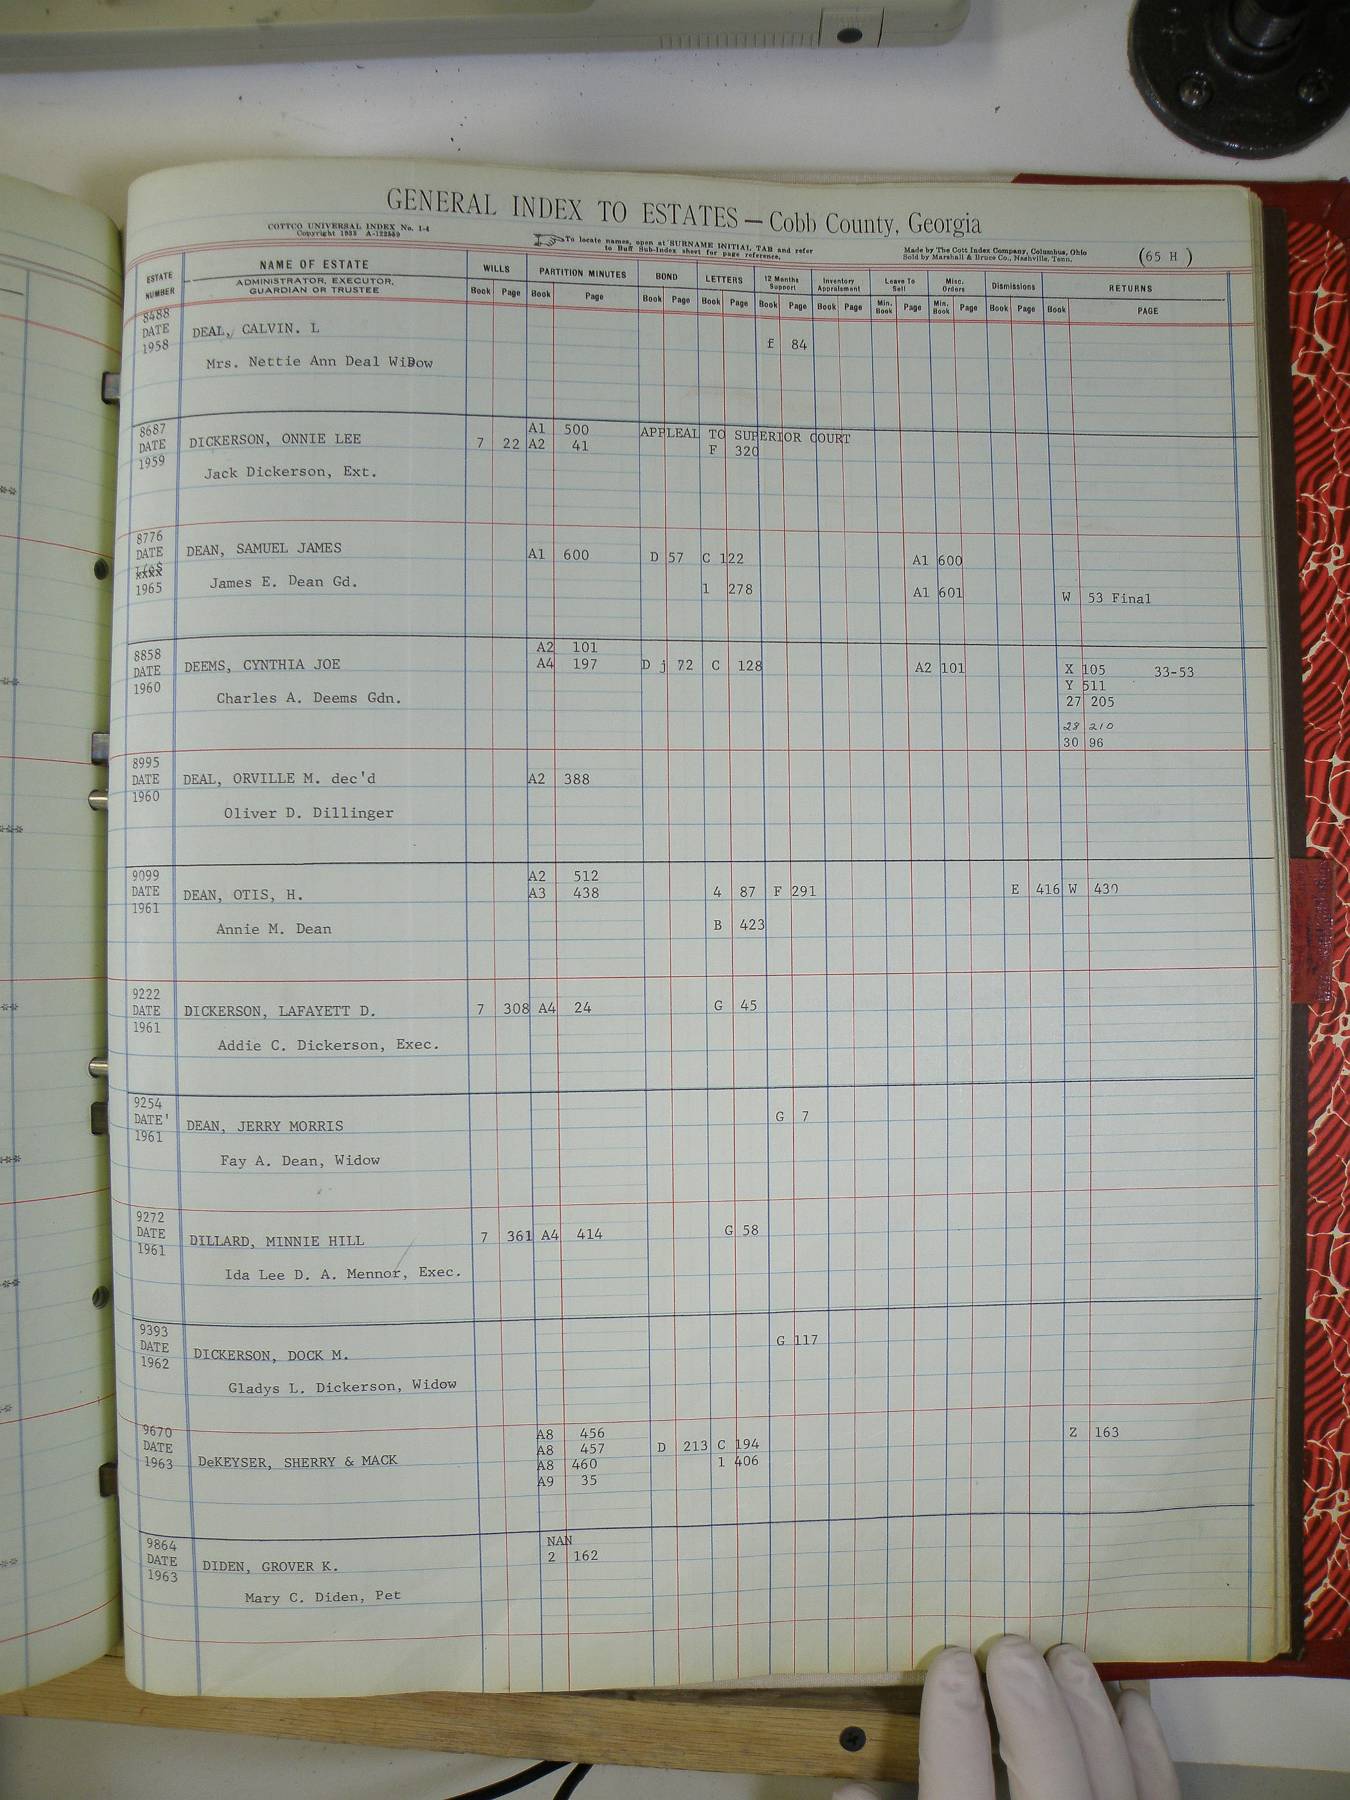 GENERAL INDEX TO ESTATES — Cobb County, Georgia
COTTCO UNIVERSAL INDEX No. 1-4
Copyright 1933 A-122859
To locate names, open at SURNAME INITIAL TAB and refer
to Buff Sub-Index sheet for page reference.
Made by The Cott Index Company, Columbus, Ohio
Sold by Marshall & Bruce Co., Nashville, Tenn.
(65 H )
ESTATE NUMBER
NAME OF ESTATE
ADMINISTRATOR, EXECUTOR,
GUARDIAN OR TRUSTEE
WILLS PARTITION MINUTES BOND LETTERS 12 Months Support Inventory Appraisment Leave To Sell Misc. Orders Dismissions RETURNS
Book Page Book Page Book Page Book Page Book Page Book Page Min. Book Page Min. Book Page Book Page Book PAGE
8488
DATE DEAL, CALVIN. L
1958 f 84
Mrs. Nettie Ann Deal WiDow
8687 A1 500 APPLEAL TO SUPERIOR COURT
DATE DICKERSON, ONNIE LEE 7 22 A2 41 F 320
1959
Jack Dickerson, Ext.
8776
DATE DEAN, SAMUEL JAMES A1 600 D 57 C 122 A1 600
xxxx
1965 James E. Dean Gd. 1 278 A1 601 W 53 Final
8858 A2 101
DATE DEEMS, CYNTHIA JOE A4 197 D j 72 C 128 A2 101 X 105 33-53
1960 Y 511
Charles A. Deems Gdn. 27 205
28 210
30 96
8995
DATE DEAL, ORVILLE M. dec'd A2 388
1960
Oliver D. Dillinger
9099 A2 512
DATE DEAN, OTIS, H. A3 438 4 87 F 291 E 416 W 430
1961
Annie M. Dean B 423
9222
DATE DICKERSON, LAFAYETT D. 7 308 A4 24 G 45
1961
Addie C. Dickerson, Exec.
9254
DATE' DEAN, JERRY MORRIS G 7
1961
Fay A. Dean, Widow
9272
DATE DILLARD, MINNIE HILL 7 361 A4 414 G 58
1961
Ida Lee D. A. Mennor, Exec.
9393
DATE DICKERSON, DOCK M. G 117
1962
Gladys L. Dickerson, Widow
9670 A8 456 Z 163
DATE A8 457 D 213 C 194
1963 DeKEYSER, SHERRY & MACK A8 460 1 406
A9 35
9864 NAN
DATE DIDEN, GROVER K. 2 162
1963
Mary C. Diden, Pet